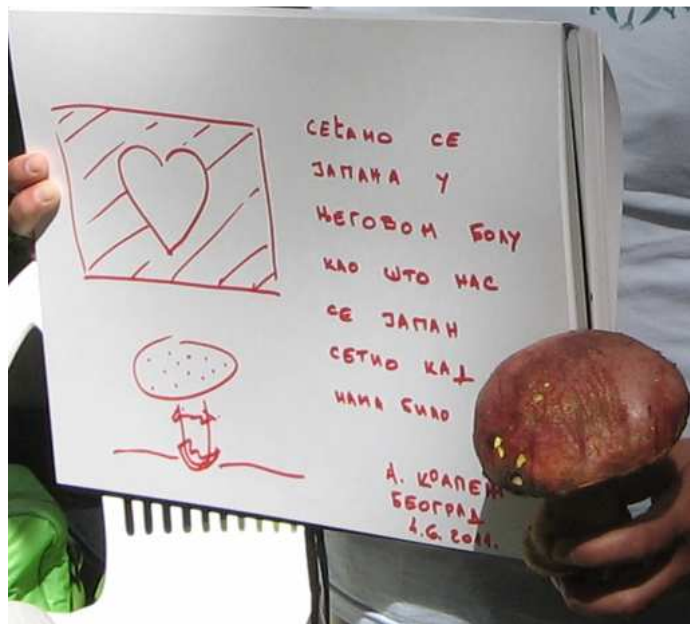 СЕЋАМО СЕ
ЈАПАНА У
ЊЕГОВОМ БОЛУ
КАО ШТО НАС
СЕ ЈАПАН
СЕТИО КАД
НАМА БИЛО
БЕОГРАД
4.6.2011.